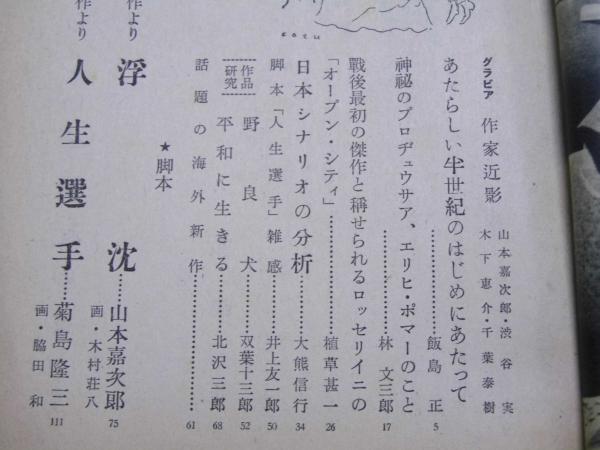 グラビア 作家近影 山本嘉次郎・渋谷実
木下恵介・千葉泰樹
あたらしい半世紀のはじめにあたって……飯島正 5
神祕のプロヂュウサア、エリヒ・ポマーのこと……林文三郎 17
戰後最初の傑作と稱せられるロッセリイニの
「オープン・シティ」……植草甚一 26
日本シナリオの分析……大熊信行 34
脚本「人生選手」雑感……井上友一郎 50
作品研究 野良犬……双葉十三郎 52
平和に生きる……北沢三郎 68
話題の海外新作……61
★脚本
作より 浮沈……山本嘉次郎 75
画・木村荘八
作より 人生選手……菊島隆三 111
画・脇田和